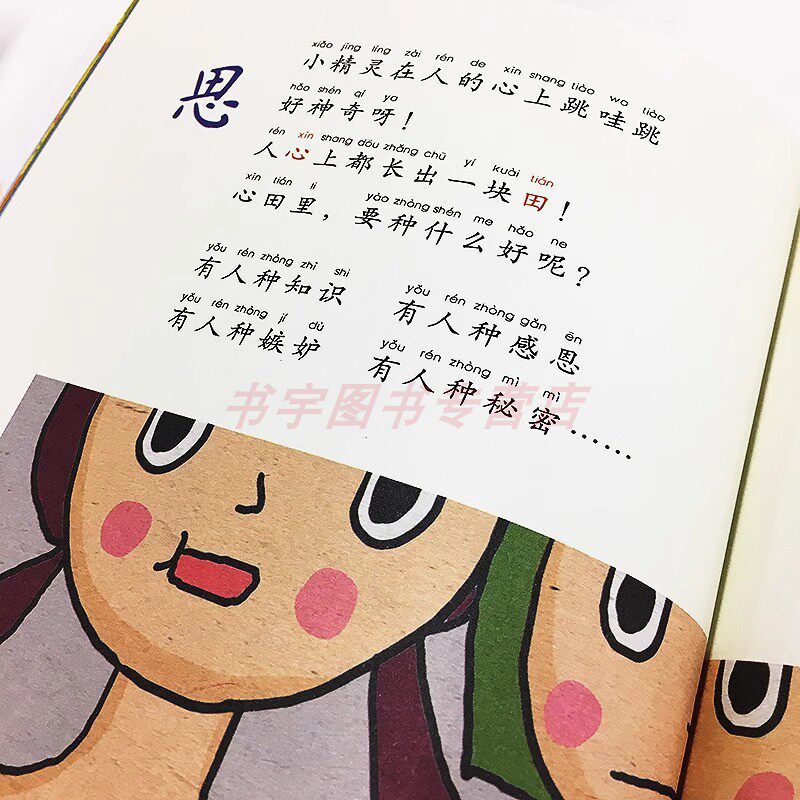 思
xiǎo jīng líng zài rén de xīn shang tiào wa tiào
小精灵在人的心上跳哇跳
hǎo shén qí ya
好神奇呀！
rén xīn shang dōu zhǎng chū yí kuài tián
人心上都长出一块田！
xīn tián li yào zhòng shén me hǎo ne
心田里，要种什么好呢？
yǒu rén zhòng zhī shi
有人种知识
yǒu rén zhòng jí dù
有人种嫉妒
yǒu rén zhòng gǎn ēn
有人种感恩
yǒu rén zhòng mì mì
有人种秘密……
书宇图书专营店